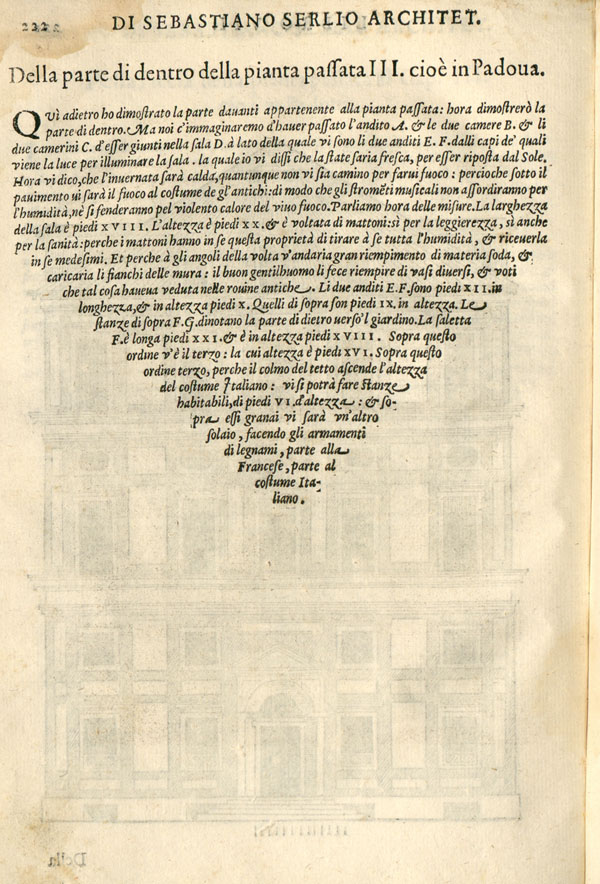 222
DI SEBASTIANO SERLIO ARCHITET.
Della parte di dentro della pianta paſſata III. cioè in Padoua.
QVì adietro ho dimoſtrato la parte dauanti appartenente alla pianta paſſata: hora dimoſtrerò la
parte di dentro. Ma noi c'immaginaremo d'hauer paſſato l'andito A. & le due camere B. & li
due camerini C. d'eſſer giunti nella ſala D. à lato della quale vi ſono li due anditi E. F. dalli capi de' quali
viene la luce per illuminare la ſala. la quale io vi diſſi che la ſtate ſaria freſca, per eſſer ripoſta dal Sole.
Hora vi dico, che l'inuernata ſarà calda, quantunque non vi ſia camino per farui fuoco: percioche ſotto il
pauimento ui ſarà il fuoco al coſtume de gl'antichi: di modo che gli ſtromẽti muſicali non aſſordiranno per
l'humidità, nè ſi ſenderanno pel violento calore del viuo fuoco. Parliamo hora delle miſure. La larghezza
della ſala è piedi XVIII. L'altezza è piedi XX. & è voltata di mattoni: sì per la leggierezza, sì anche
per la ſanità: perche i mattoni hanno in ſe queſta proprietà di tirare à ſe tutta l'humidità, & riceuerla
in ſe medeſimi. Et perche à gli angoli della volta v'andaria gran riempimento di materia ſoda, &
caricaria li fianchi delle mura: il buon gentilhuomo li fece riempire di vaſi diuerſi, & voti
che tal coſa haueua veduta nelle rouine antiche. Li due anditi E. F. ſono piedi XII. in
longhezza, & in altezza piedi X. Quelli di ſopra ſon piedi IX. in altezza. Le
ſtanze di ſopra F. G. dinotano la parte di dietro uerſo'l giardino. La ſaletta
F. è longa piedi XXI. & è in altezza piedi XVIII. Sopra queſto
ordine v'è il terzo: la cui altezza è piedi XVI. Sopra queſto
ordine terzo, perche il colmo del tetto aſcende l'altezza
del coſtume Italiano: vi ſi potrà fare ſtanze
habitabili, di piedi VI. d'altezza: & ſo-
pra eſſi granai vi ſarà vn'altro
ſolaio, facendo gli armamenti
di legnami, parte alla
Franceſe, parte al
coſtume Ita-
liano.
Della